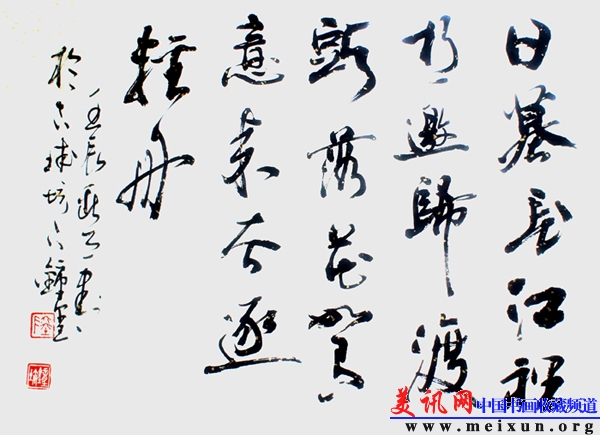 日暮長江裡
相邀歸渡
頭落花如有
意來去逐
輕舟
壬辰
於
美讯网 中国书画收藏频道
www.meixun.org